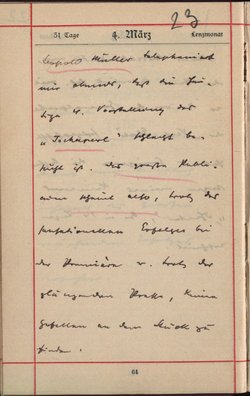 23
31 Tage 4. März Lenzmonat
Leopold Müller telephoniert
mir abends, daß die heu-
tige 2. Vorstellung des
"Tschaperl" schlecht be-
sucht ist. Das große Publi-
cum scheint also, trotz des
sensationellen Erfolges bei
der Premiére u. trotz der
glänzenden Presse, keinen
Gefallen an dem Stück zu
finden.
64